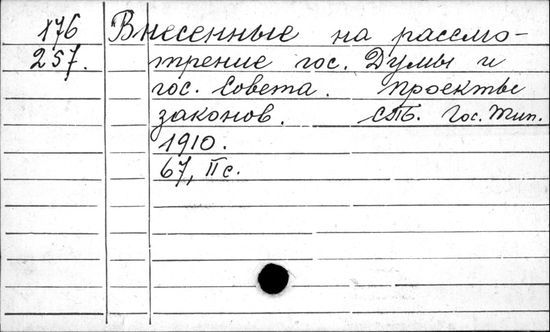 176 Внесенные на рассмо-
257. трение гос. Думы и
гос. Совета. проекты
законов. СПБ. Гос. тип.
1910.
67, II с.